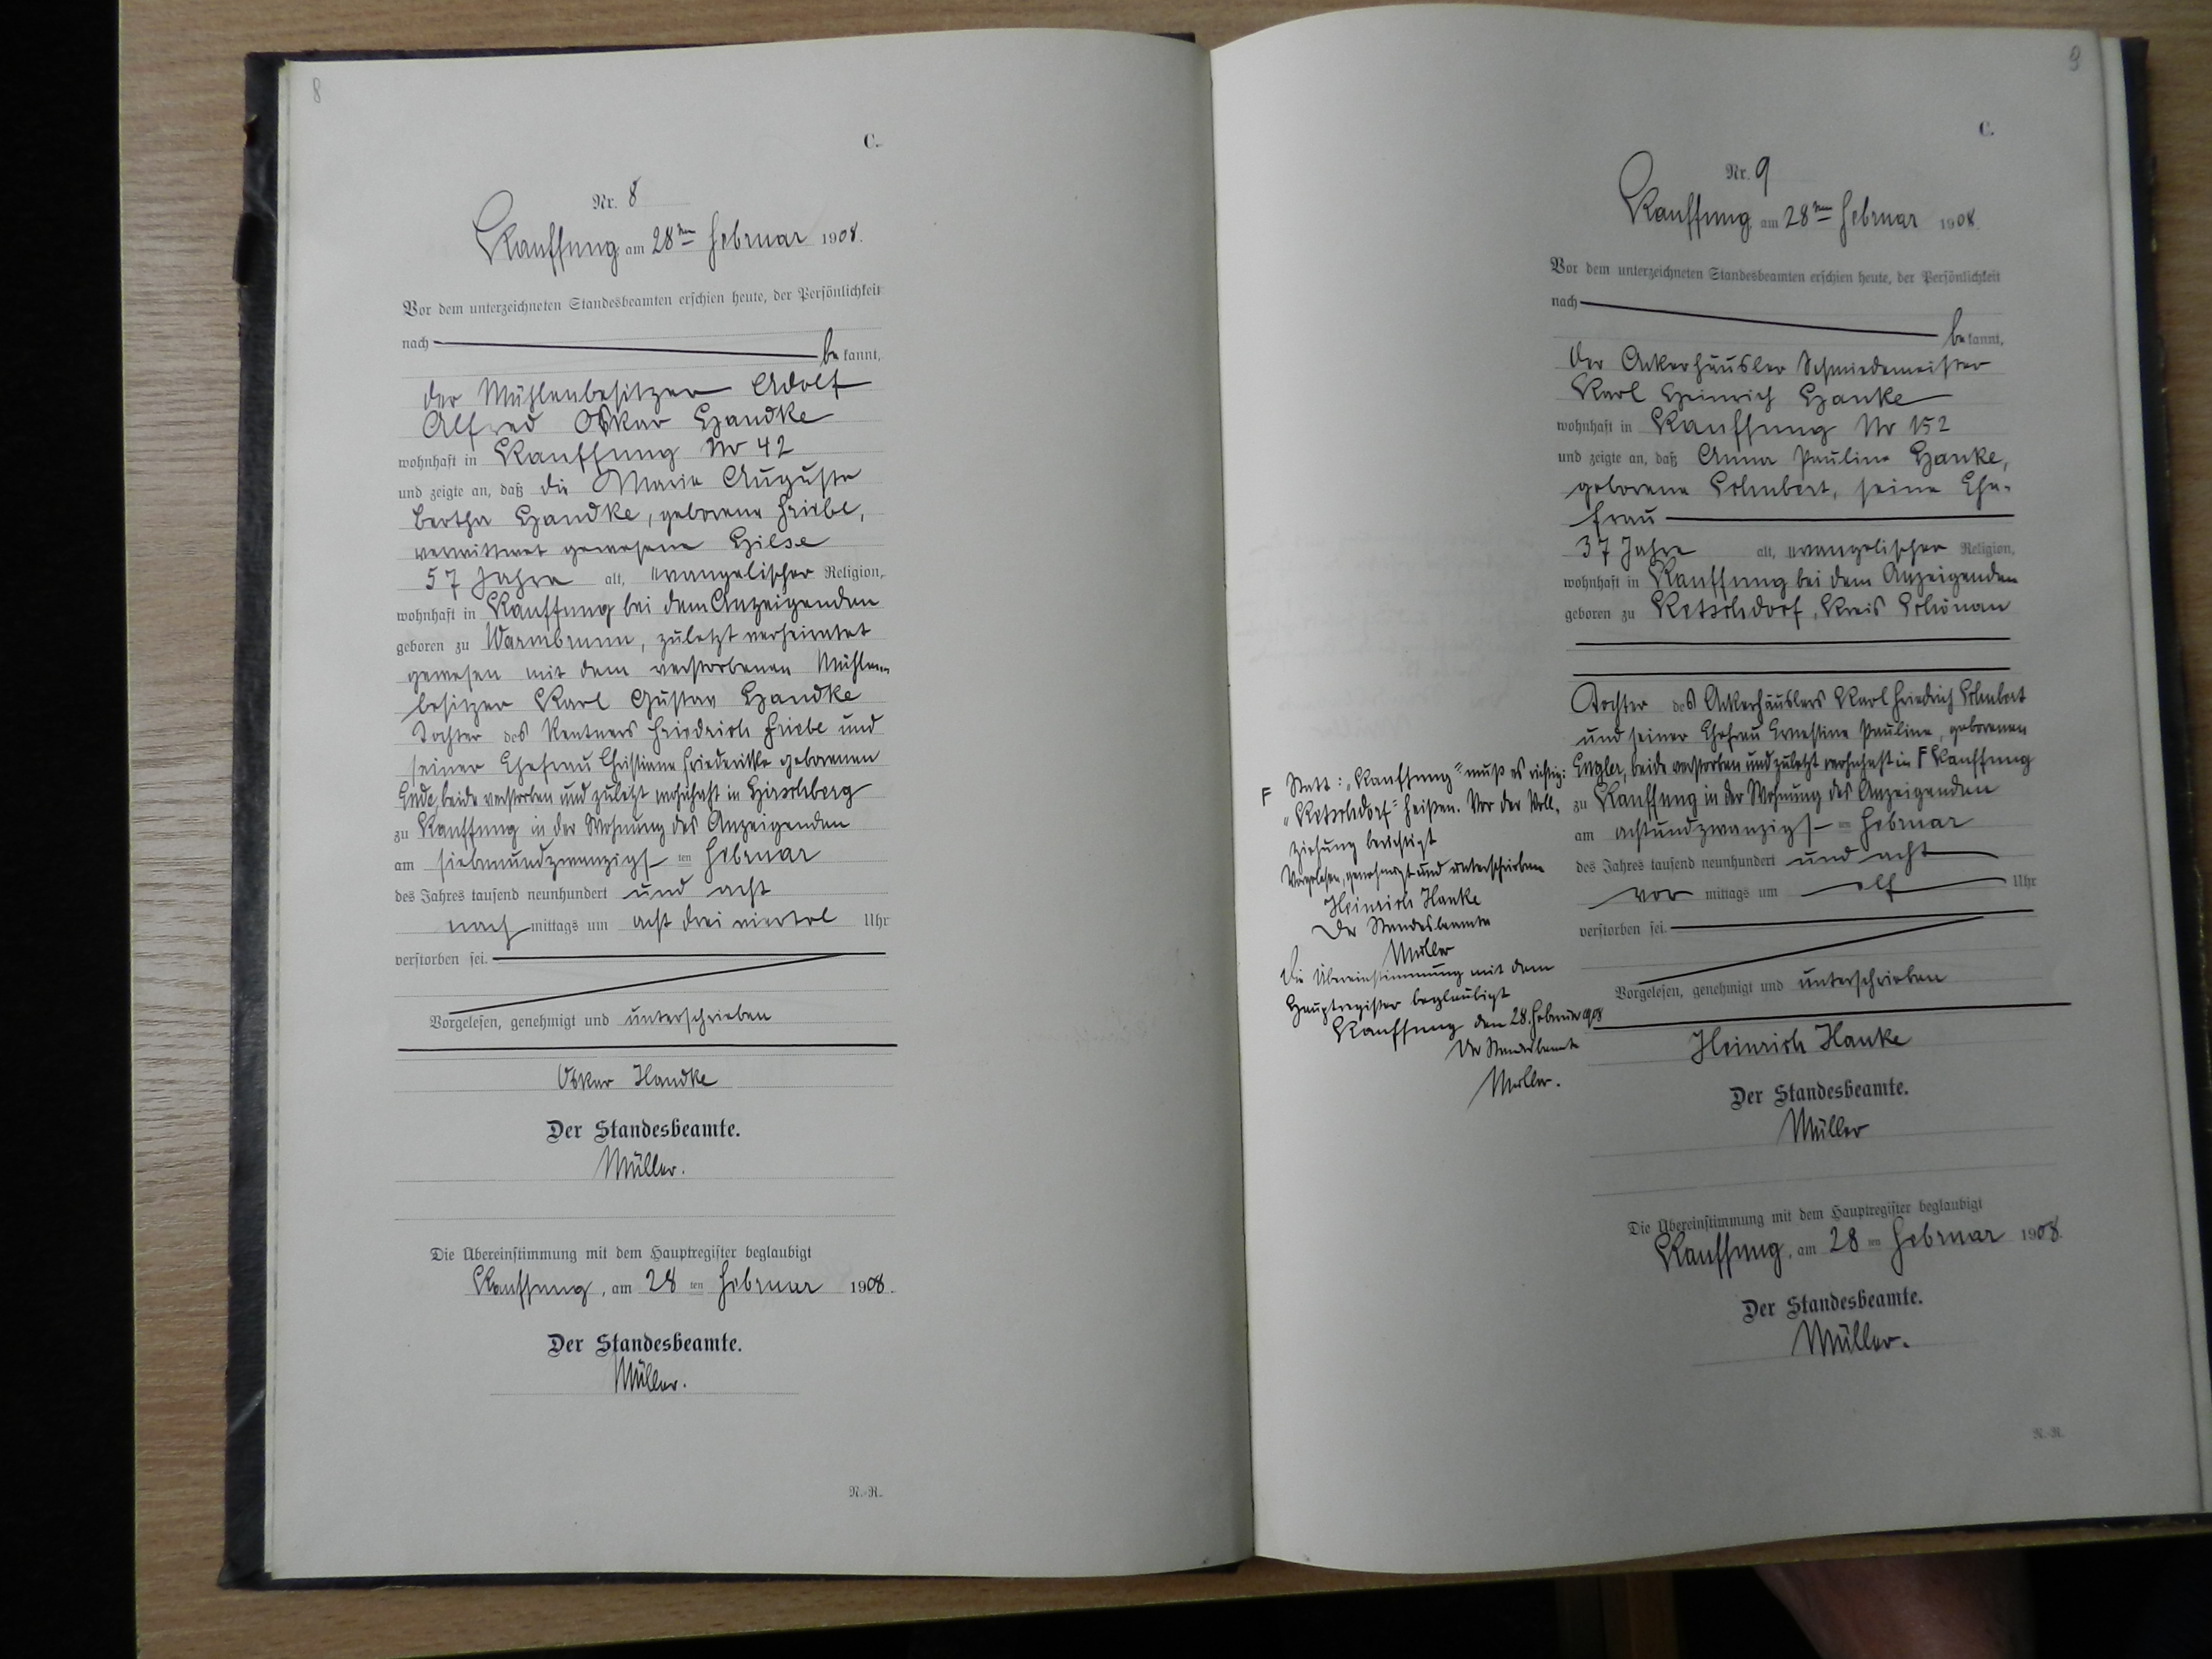 8
C.
Nr. 8
Kauffung am 28ten Februar 1908.
Vor dem unterzeichneten Standesbeamten erschien heute, der Persönlichkeit
nach be kannt,
der Mühlenbesitzer Adolf
Alfred Oskar Handke
wohnhaft in Kauffung Nr 42
und zeigte an, daß die Maria Auguste
Bertha Handke, geborene Friebe,
verwittwet gewesene Hilse
57 Jahre alt, evangelischer Religion,
wohnhaft in Kauffung bei dem Anzeigenden
geboren zu Warmbrunn, zuletzt verheiratet
gewesen mit dem verstorbenen Mühlen-
besitzer Karl Gustav Handke
Tochter des Rentners Friedrich Friebe und
seiner Ehefrau Christiane Friederike geborenen
Ende, beide verstorben und zuletzt wohnhaft in Hirschberg
zu Kauffung in der Wohnung des Anzeigenden
am siebenundzwanzigs ten Februar
des Jahres tausend neunhundert und acht
nach mittags um acht drei viertel Uhr
verstorben sei.
Vorgelesen, genehmigt und unterschrieben
Oskar Handke
Der Standesbeamte.
Müller.
Die Übereinstimmung mit dem Hauptregister beglaubigt
Kauffung, am 28 ten Februar 1908.
Der Standesbeamte.
Müller.
N.-R.
9
C.
Nr. 9
Kauffung am 28ten Februar 1908.
Vor dem unterzeichneten Standesbeamten erschien heute, der Persönlichkeit
nach be kannt,
der Ackerhäusler Schmiedemeister
Karl Heinrich Hanke
wohnhaft in Kauffung Nr 152
und zeigte an, daß Anna Pauline Hanke,
geborene Schubert, seine Ehe-
frau
37 Jahre alt, evangelischer Religion,
wohnhaft in Kauffung bei dem Anzeigenden
geboren zu Ketschdorf, Kreis Schönau
Tochter des Ackerhäuslers Karl Friedrich Schubert
und seiner Ehefrau Ernestine Pauline, geborenen
Engler, beide verstorben und zuletzt wohnhaft in F Kauffung
zu Kauffung in der Wohnung des Anzeigenden
am achtundzwanzigs ten Februar
des Jahres tausend neunhundert und acht
vor mittags um elf Uhr
verstorben sei.
Vorgelesen, genehmigt und unterschrieben
Heinrich Hanke
Der Standesbeamte.
Müller
Die Übereinstimmung mit dem Hauptregister beglaubigt
Kauffung, am 28 ten Februar 1908.
Der Standesbeamte.
Müller.
N.-R.
F Statt: "Kauffung" muß es richtig:
"Ketschdorf" heißen. Vor der Voll-
ziehung berichtigt
Vorgelesen, genehmigt und unterschrieben
Heinrich Hanke
Der Standesbeamte
Müller
Die Übereinstimmung mit dem
Hauptregister beglaubigt
Kauffung den 28. Februar 908
Der Standesbeamte
Müller.